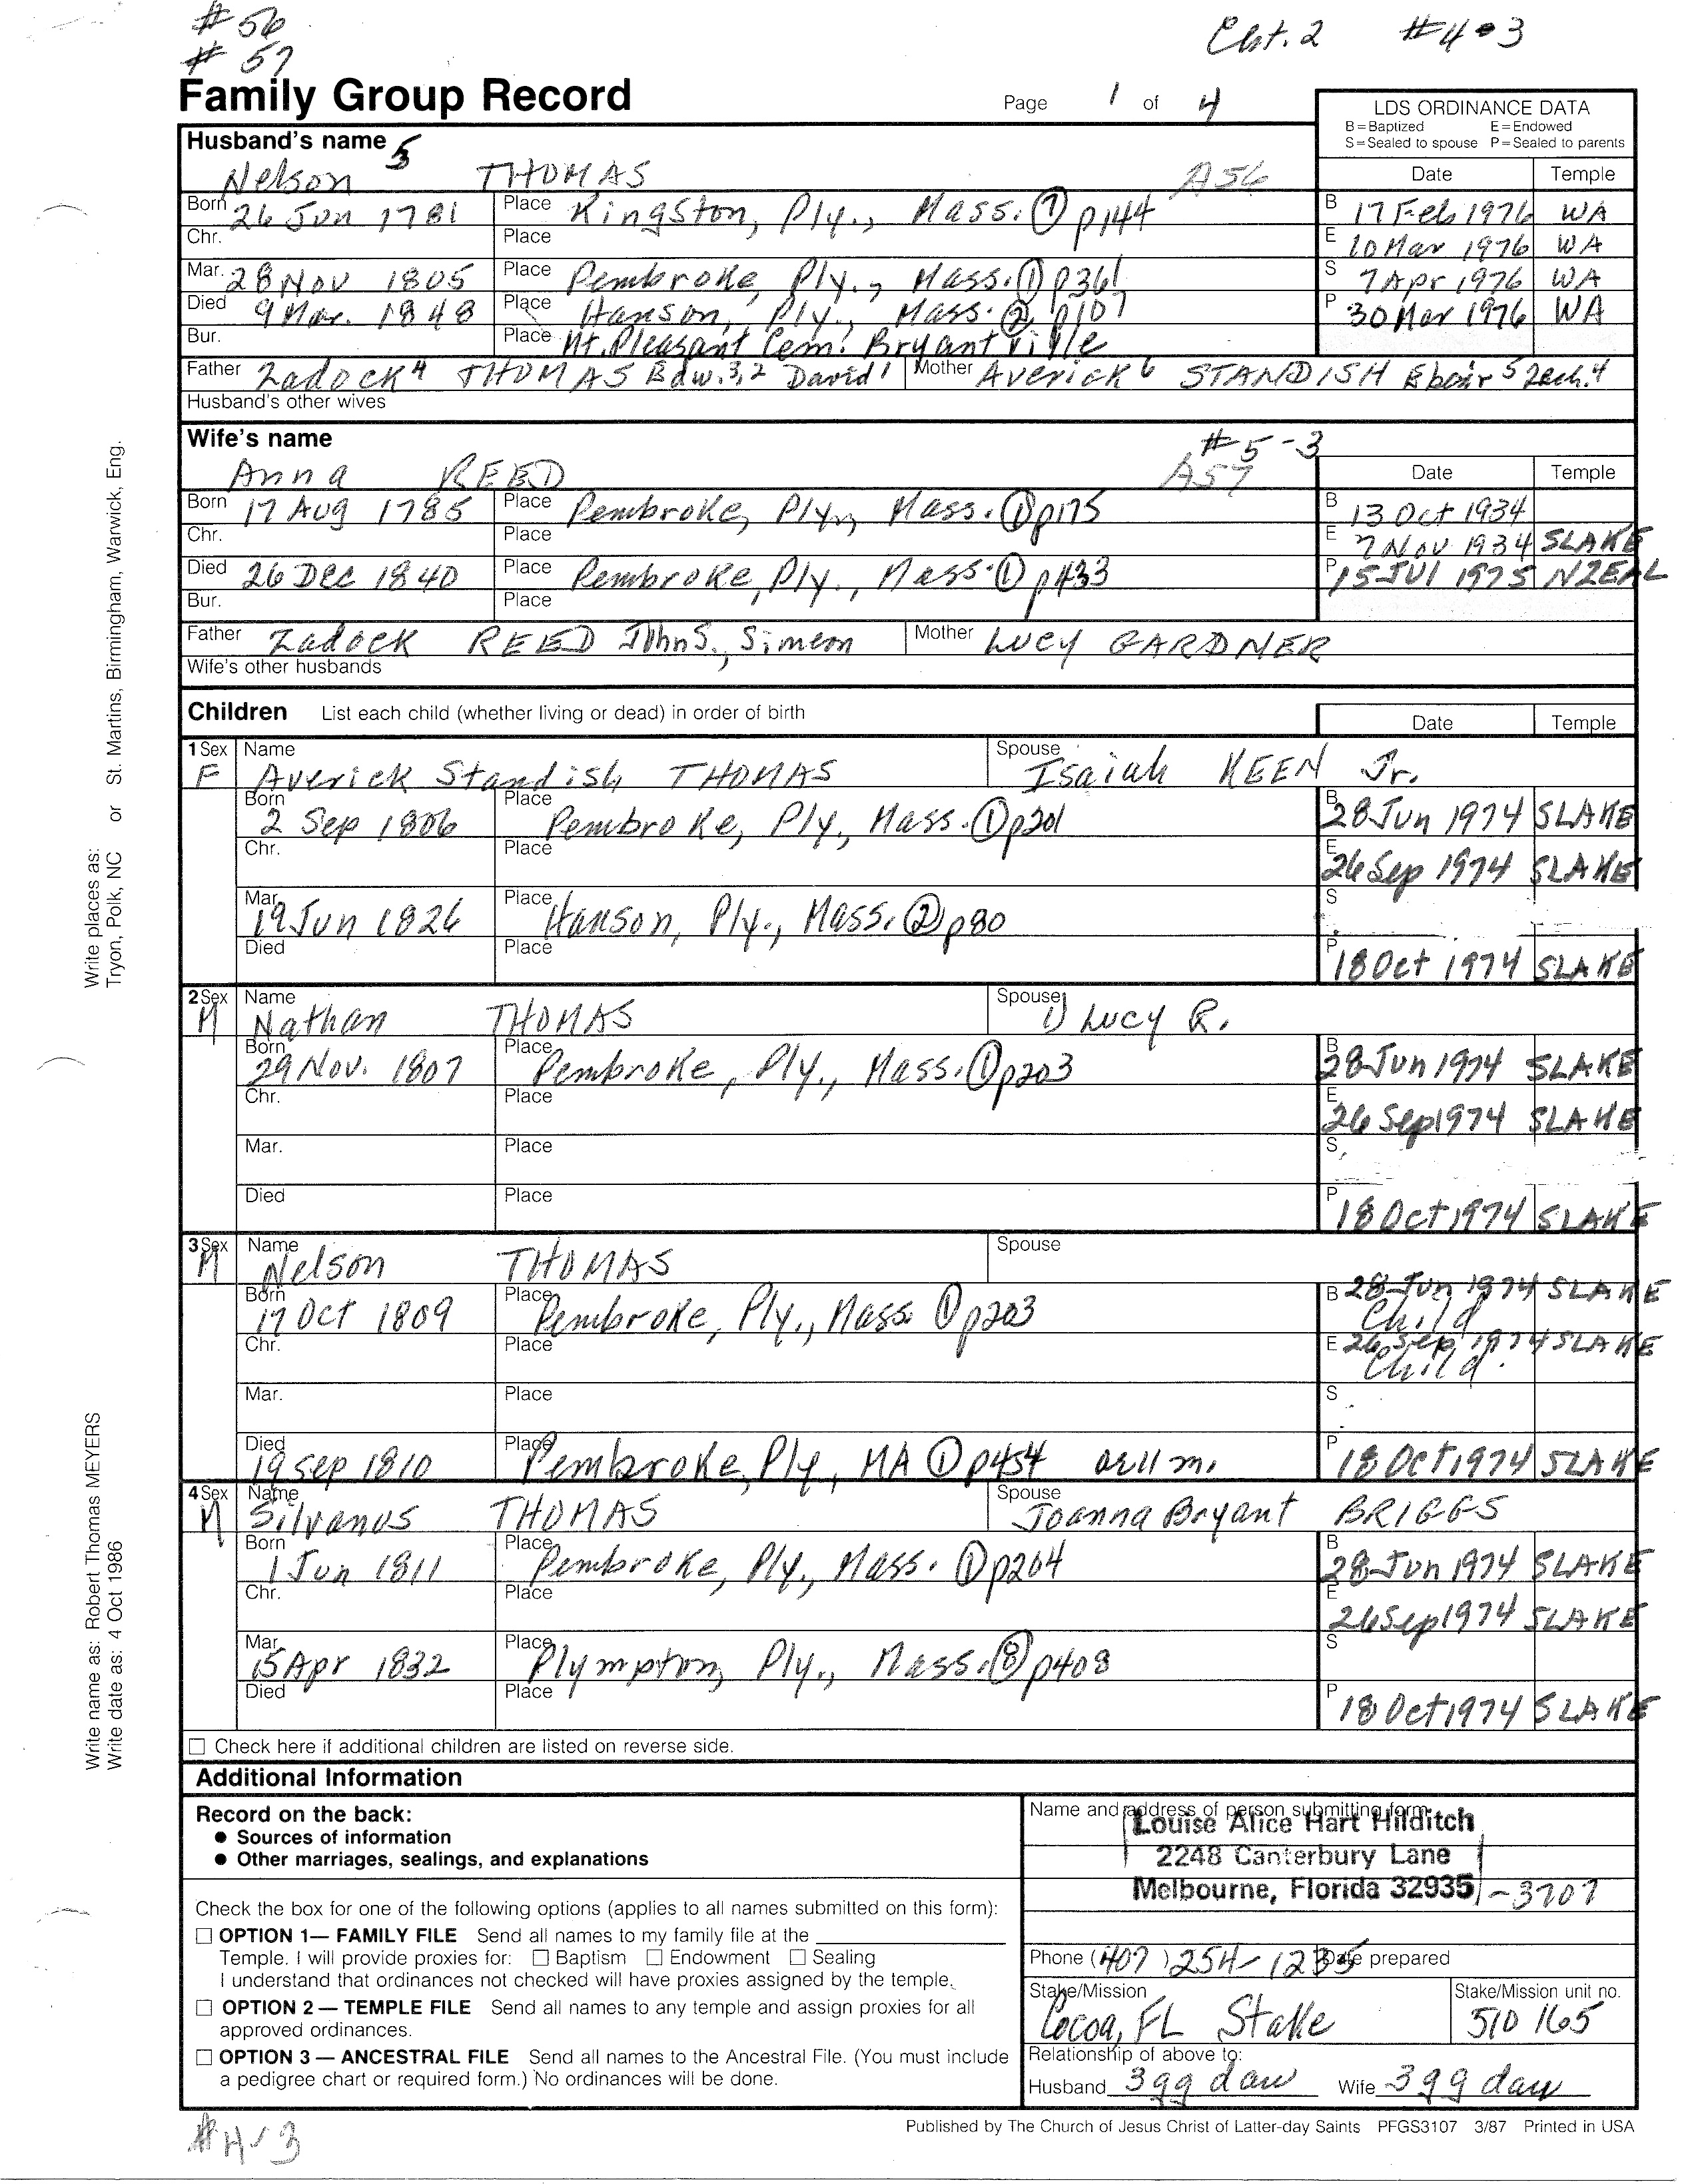 #56
#57
Cht. 2 #4-3
Family Group Record
Page 1 of 4
LDS ORDINANCE DATA
B=Baptized E=Endowed
S=Sealed to spouse P=Sealed to parents
Husband's name 5
Nelson THOMAS A56
Date Temple
Born 26 Jun 1781 Place Kingston, Ply., Mass. ① p144 B 17 Feb 1976 WA
Chr. Place E 10 Mar 1976 WA
Mar. 28 Nov 1805 Place Pembroke, Ply., Mass. ① p361 S 7 Apr 1976 WA
Died 9 Mar. 1848 Place Hanson, Ply., Mass. ② p107 P 30 Mar 1976 WA
Bur. Place Mt. Pleasant Cem. Bryantville
Father Zadock 4 THOMAS Edw. 3,2 David 1 Mother Averick 6 STANDISH Ebenr 5 Zach. 4
Husband's other wives
Wife's name
#5-3
Anna REED A57
Date Temple
Born 17 Aug 1785 Place Pembroke, Ply., Mass. ① p175 B 13 Oct 1934
Chr. Place E 7 Nov 1934 SLAKE
Died 26 Dec 1840 Place Pembroke, Ply., Mass. ① p433 P 15 JUl 1975 NZEAL
Bur. Place
Father Zadock REED John S., Simeon Mother Lucy GARDNER
Wife's other husbands
Children List each child (whether living or dead) in order of birth Date Temple
1 Sex Name Spouse
F Averick Standish THOMAS Isaiah KEEN Jr.
Born 2 Sep 1806 Place Pembroke, Ply, Mass. ① p201 B 28 Jun 1974 SLAKE
Chr. Place E 26 Sep 1974 SLAKE
Mar. 19 Jun 1826 Place Hanson, Ply., Mass. ② p80 S
Died Place P 18 Oct 1974 SLAKE
2 Sex Name Spouse
M Nathan THOMAS 1) Lucy R.
Born 29 Nov. 1807 Place Pembroke, Ply., Mass. ① p203 B 28 Jun 1974 SLAKE
Chr. Place E 26 Sep 1974 SLAKE
Mar. Place S
Died Place P 18 Oct 1974 SLAKE
3 Sex Name Spouse
M Nelson THOMAS
Born 17 Oct 1809 Place Pembroke, Ply., Mass ① p203 B 28 Jun 1974 SLAKE
Child
Chr. Place E 26 Sep 1974 SLAKE
Child
Mar. Place S
Died 19 Sep 1810 Place Pembroke, Ply, MA ① p454 P 18 Oct 1974 SLAKE
4 Sex Name Spouse
M Silvanus THOMAS Joanna Bryant BRIGGS
Born 1 Jun 1811 Place Pembroke, Ply., Mass. ① p204 B 28 Jun 1974 SLAKE
Chr. Place E 26 Sep 1974 SLAKE
Mar. 15 Apr 1832 Place Plympton, Ply., Mass. ⑧ p408 S
Died Place P 18 Oct 1974 SLAKE
Check here if additional children are listed on reverse side.
Additional Information
Record on the back:
● Sources of information
● Other marriages, sealings, and explanations
Check the box for one of the following options (applies to all names submitted on this form):
OPTION 1— FAMILY FILE Send all names to my family file at the
Temple. I will provide proxies for: Baptism Endowment Sealing
I understand that ordinances not checked will have proxies assigned by the temple.
OPTION 2 — TEMPLE FILE Send all names to any temple and assign proxies for all
approved ordinances.
OPTION 3 — ANCESTRAL FILE Send all names to the Ancestral File. (You must include
a pedigree chart or required form.) No ordinances will be done.
Name and address of person submitting form:
Louise Alice Hart Hilditch
2248 Canterbury Lane
Melbourne, Florida 32935 -3707
Phone (407) 254-1235 Date prepared
Stake/Mission Stake/Mission unit no.
Cocoa, FL Stake 510 165
Relationship of above to:
Husband 3 gg dau Wife 3 gg dau
Published by The Church of Jesus Christ of Latter-day Saints PFGS3107 3/87 Printed in USA
#4-3
Write places as: Tryon, Polk, NC or St. Martins, Birmingham, Warwick, Eng.
Write name as: Robert Thomas MEYERS
Write date as: 4 Oct 1986